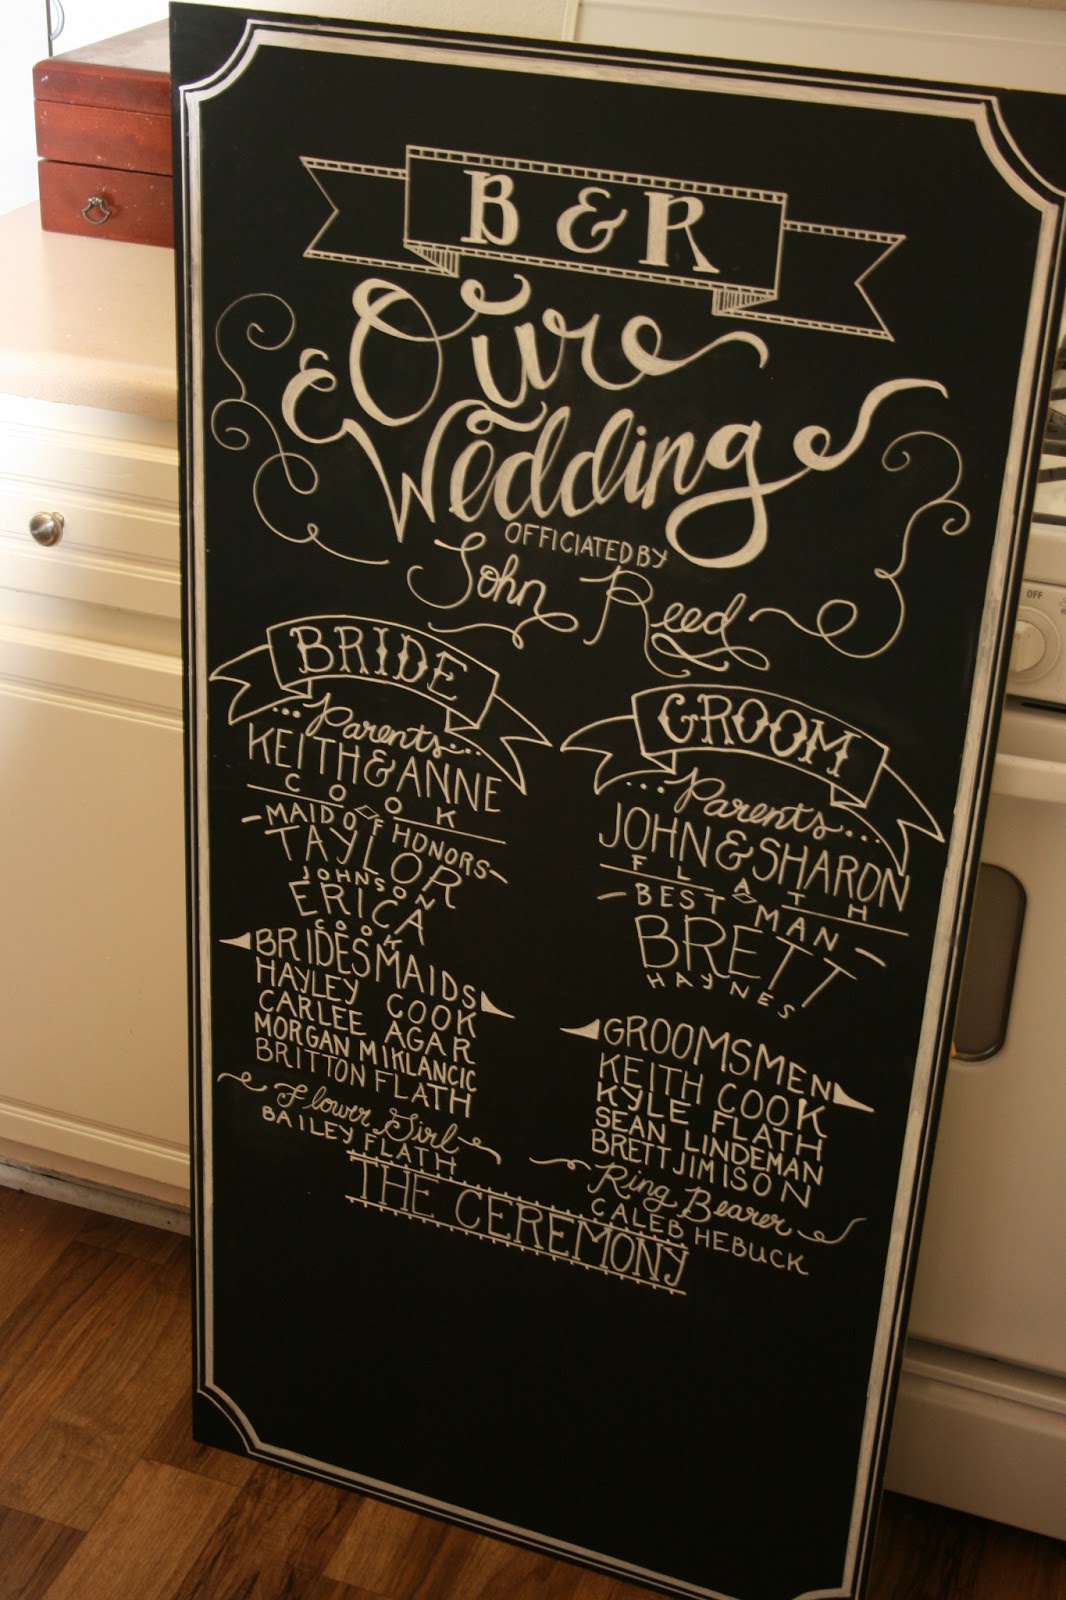 B & R
Our
& Wedding
OFFICIATED BY
John Reed
BRIDE
...Parents...
KEITH & ANNE
COOK
MAID OF HONORS
TAYLOR
JOHNSON
ERICA
COOK
BRIDESMAIDS
HAYLEY COOK
CARLEE AGAR
MORGAN MIKLANCIC
BRITTON FLATH
Flower Girl
BAILEY FLATH
GROOM
...Parents...
JOHN & SHARON
FLATH
BEST MAN
BRETT
HAYNES
GROOMSMEN
KEITH COOK
KYLE FLATH
SEAN LINDEMAN
BRETT JIMISON
Ring Bearer
CALEB HEBUCK
THE CEREMONY
OFF